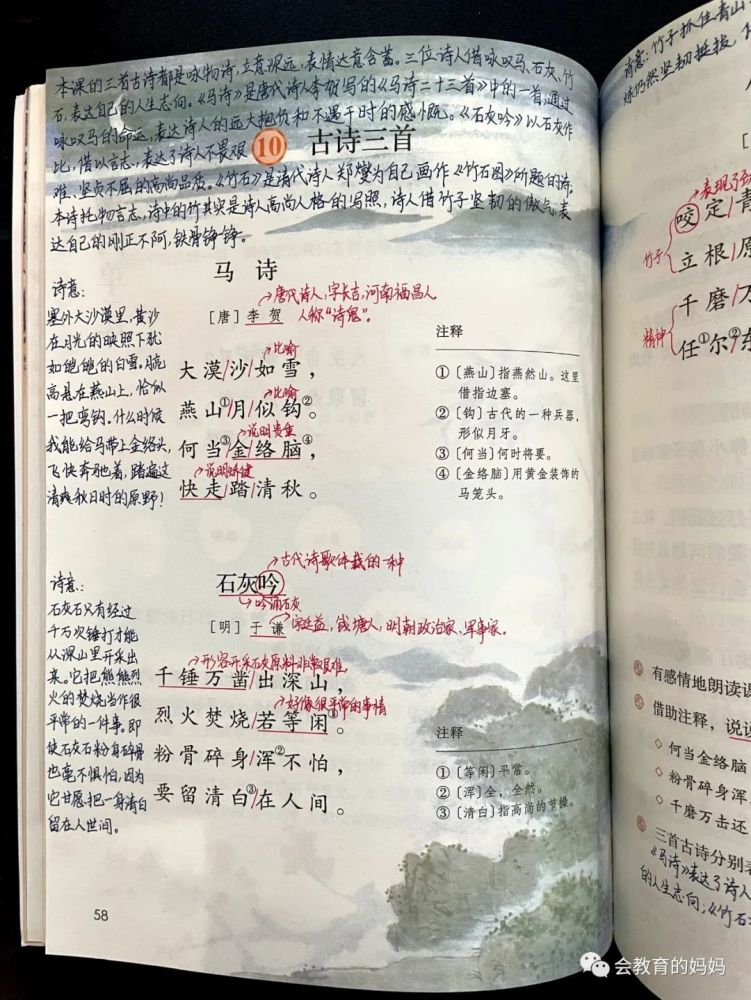 本课的三首古诗都是咏物诗,立意深远,表情达意含蓄。三位诗人借咏叹马、石灰、竹
石,表达自己的人生志向。《马诗》是唐代诗人李贺写的《马诗二十三首》中的一首,通过
咏叹马的命运,表达诗人的远大抱负和不遇于时的感慨。《石灰吟》以石灰作
比,借以言志,表达了诗人不畏艰
难、坚贞不屈的高尚品质。《竹石》是清代诗人郑燮为自己画作《竹石图》所题的诗,
本诗托物言志,诗中的竹其实是诗人高尚人格的写照,诗人借竹子坚韧的傲气表
达自己的刚正不阿,铁骨铮铮。
10 古诗三首
马诗
[唐] 李贺
唐代诗人,字长吉,河南福昌人
人称“诗鬼”。
比喻
大漠/沙/如雪,
比喻
燕山①/月/似钩②。
说明贵重
何当③/金络脑④,
说明矫健
快走/踏/清秋。
诗意:
塞外大沙漠里,黄沙
在月光的映照下犹
如皑皑的白雪。月亮
高悬在燕山上,恰似
一把弯钩。什么时候
我能给马带上金络头,
飞快奔驰着,踏遍这
清爽秋日时的原野!
注释
①〔燕山〕指燕然山。这里
借指边塞。
②〔钩〕古代的一种兵器,
形似月牙。
③〔何当〕何时将要。
④〔金络脑〕用黄金装饰的
马笼头。
古代诗歌体裁的一种
石灰吟
吟诵石灰
[明] 于谦
字廷益,钱塘人,明朝政治家、军事家。
形容开采石灰原料非常艰难
千锤万凿/出深山,
好像很平常的事情
烈火焚烧/若等闲①。
粉骨碎身/浑②不怕,
要留清白③/在人间。
诗意:
石灰石只有经过
千万次锤打才能
从深山里开采出
来。它把熊熊烈
火的焚烧当作很
平常的一件事。即
使石灰石粉身碎骨
也毫不惧怕,因为
它甘愿把一身清白
留在人世间。
注释
①〔等闲〕平常。
②〔浑〕全,全然。
③〔清白〕指高尚的节操。
58
诗意:竹子抓住青山
仍然坚韧挺拔,
表现了
咬定青
竹子
立根原
千磨万
精神
任①尔②东
有感情地朗读课
借助注释,说说
◇ 何当金络脑
◇ 粉骨碎身
◇ 千磨万击还
三首古诗分别表
《马诗》表达了诗人
的人生志向;《竹石
会教育的妈妈